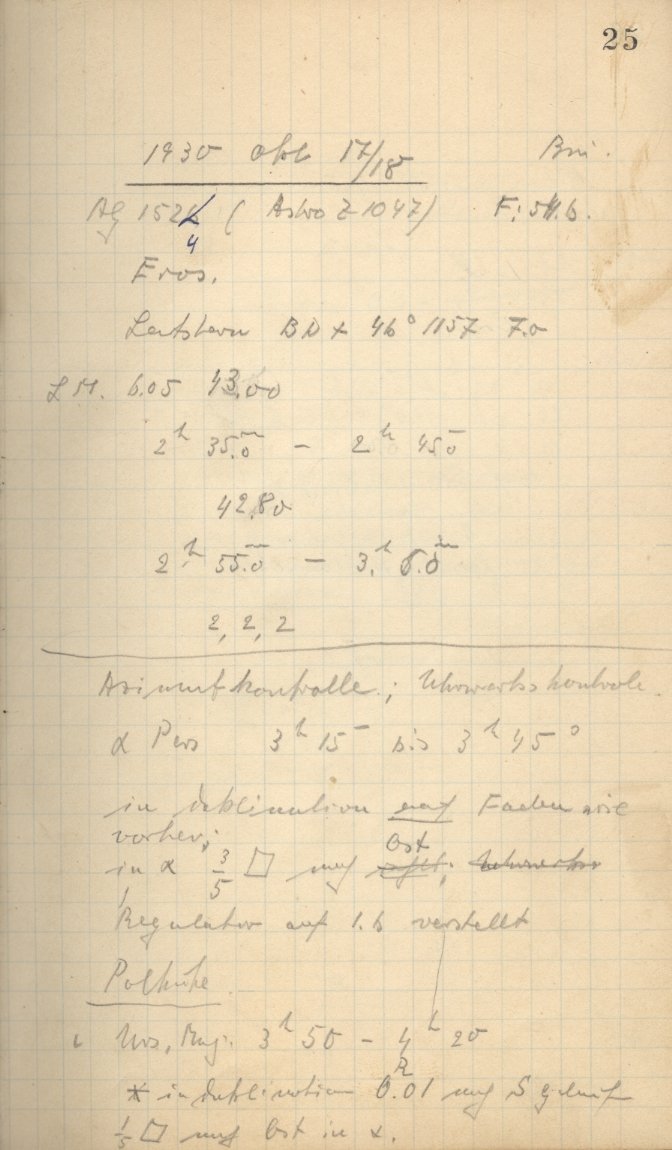 25
1930 Okt 17/18 Bri.
AG 1524 (Astro Z 1047) F: 54.6.
Eros.
Leitstern BD + 46° 1157 7.0
L M. 6.05 43.00
2h 35.0m – 2h 45.0
42.80
2h 55.0m – 3h 6.0m
2, 2, 2
Azimutkontrolle; Uhrwerkskontrole.
α Pers 3h 15m bis 3h 45°
in deklination auf Faden wie
vorher;
in α 3/5 □ nach Ost
Regulator auf 1.6 verstellt
Polhöhe
ι Urs. Maj. 3h 50 – 4h 20
* in deklination 0.01R nach S
1/5 □ nach Ost in α.